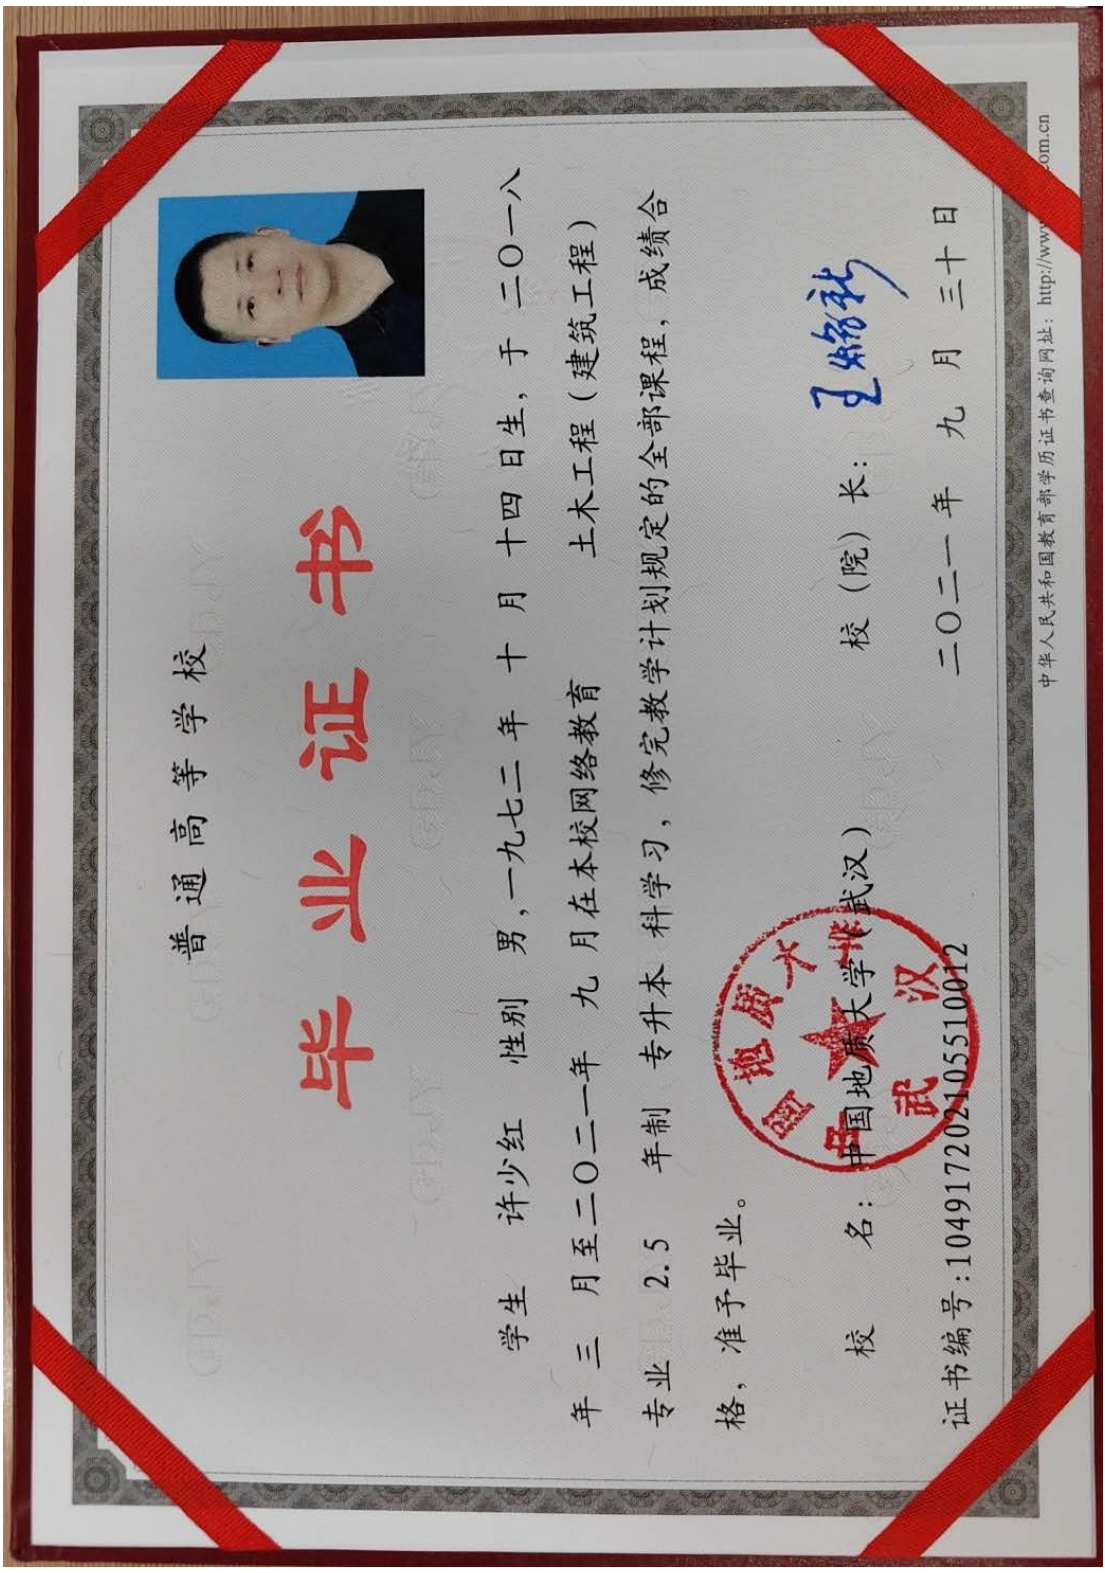 普通高等学校
毕业证书
学生 许少红 性别 男,一九七二年 十 月 十四 日生，于 二〇一八
年 三 月至二〇二一年 九 月在本校网络教育 土木工程（建筑工程）
专业 2.5 年制 专升本 科学习，修完教学计划规定的全部课程，成绩合
格，准予毕业。
校 名：中国地质大学（武汉） 校（院）长：
中国地质大学
武汉
证书编号:104917202105510012 二〇二一年 九 月 三十 日
中华人民共和国教育部学历证书查询网址：http://www. com.cn